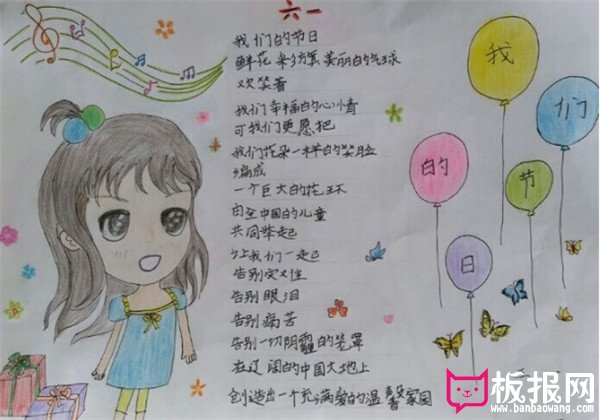 六一
我们的节日
鲜花 彩旗 美丽的气球
欢笑着
我们幸福的心情
可我们更愿把
我们花朵一样的笑脸
编成
一个巨大的花环
由全中国的儿童
共同举起
让我们一起
告别灾难
告别眼泪
告别痛苦
告别一切阴霾的笼罩
在辽阔的中国大地上
创造出一个充满爱的温馨家园
我们的节日
板报网
www.banbaowang.com